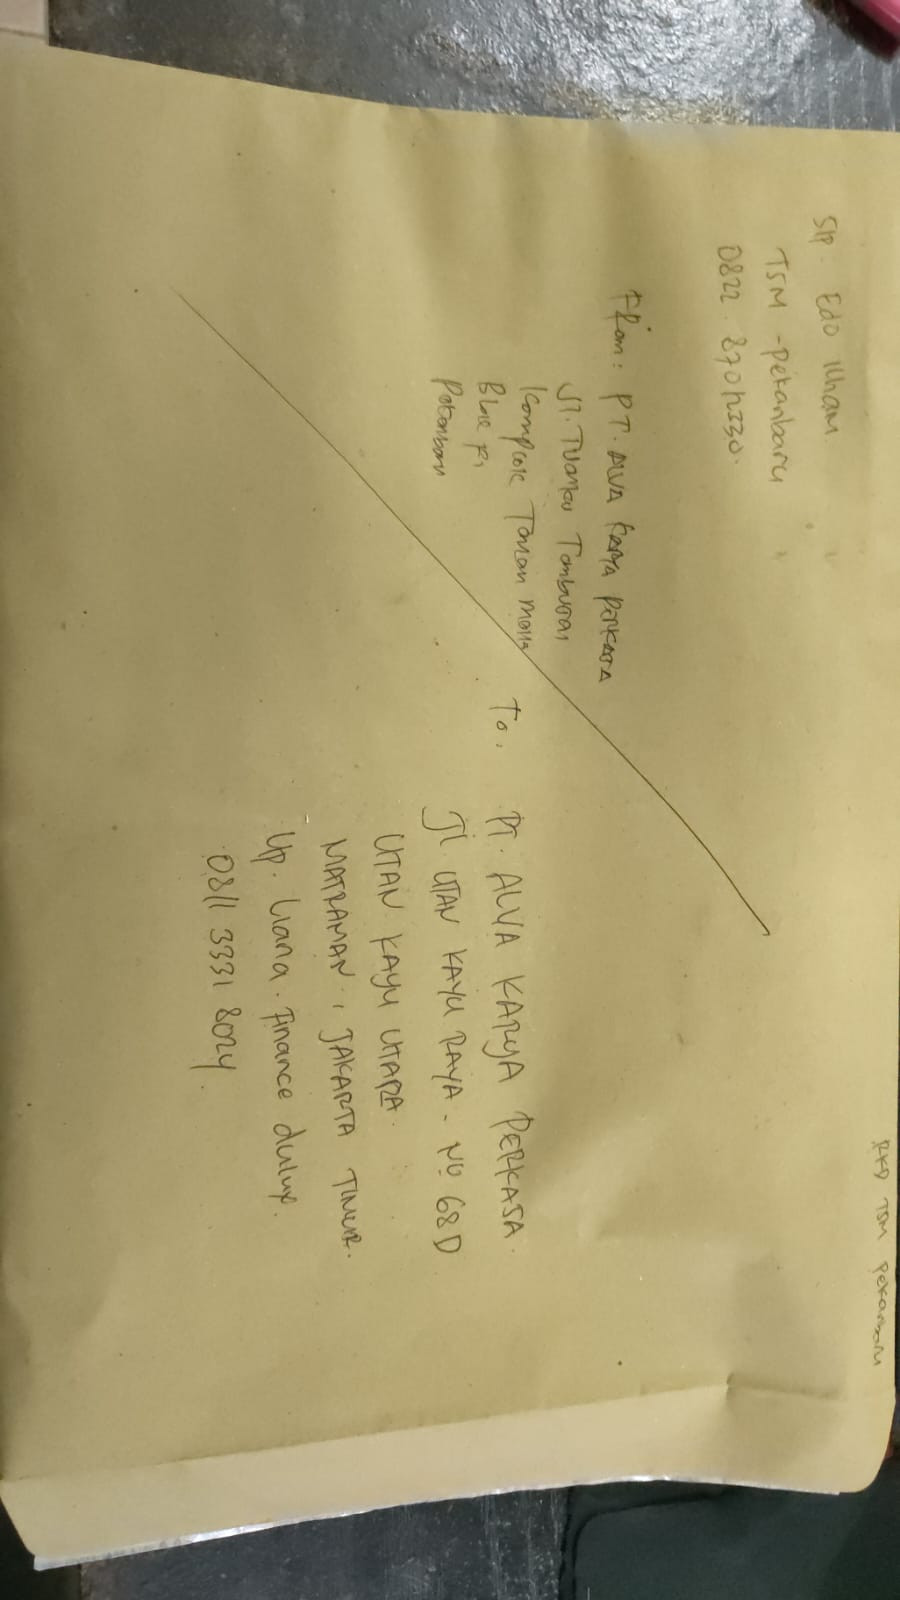 RKD TSM Pekanbaru
Edo Ilham
TSM - Pekanbaru
0822
From: PT. ALVA KARYA PERKASA
Jl. Tuanku Tambusai
Komplek Taman Mella
Blok
Pekanbaru
To,
PT. ALVA KARYA PERKASA.
Jl. UTAN KAYU RAYA. No 68D
UTAN KAYU UTARA.
MATRAMAN, JAKARTA TIMUR.
Up. Liana. Finance dulux.
0811 3331 8024